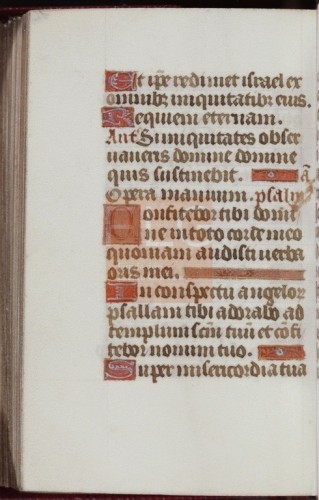 Et ip̄e redimet israel ex
omnibꝫ iniquitatibꝫ eius.
Requiem eternam.
Ant̄ Si iniquitates obser
uaueris domine domine
quis sustinebit. a͞
Opera manuum. psalm̄
Confitebor tibi domi
ne in toto corde meo
quoniam audisti uerba
oris mei.
In conspectu angelor
psallam tibi adorabo ad
templum sc̄m tuū et cōfi
tebor nomini tuo.
Super misericordia tua